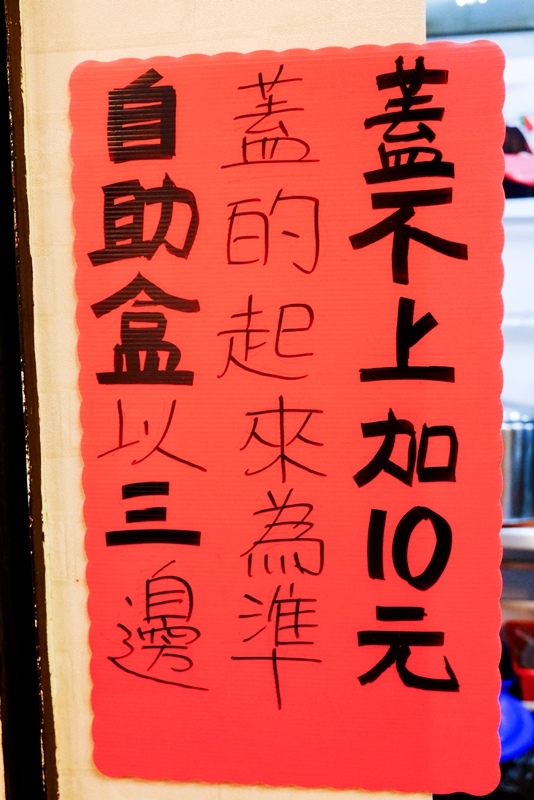 自助盒以三邊
蓋的起來為準
蓋不上加10元